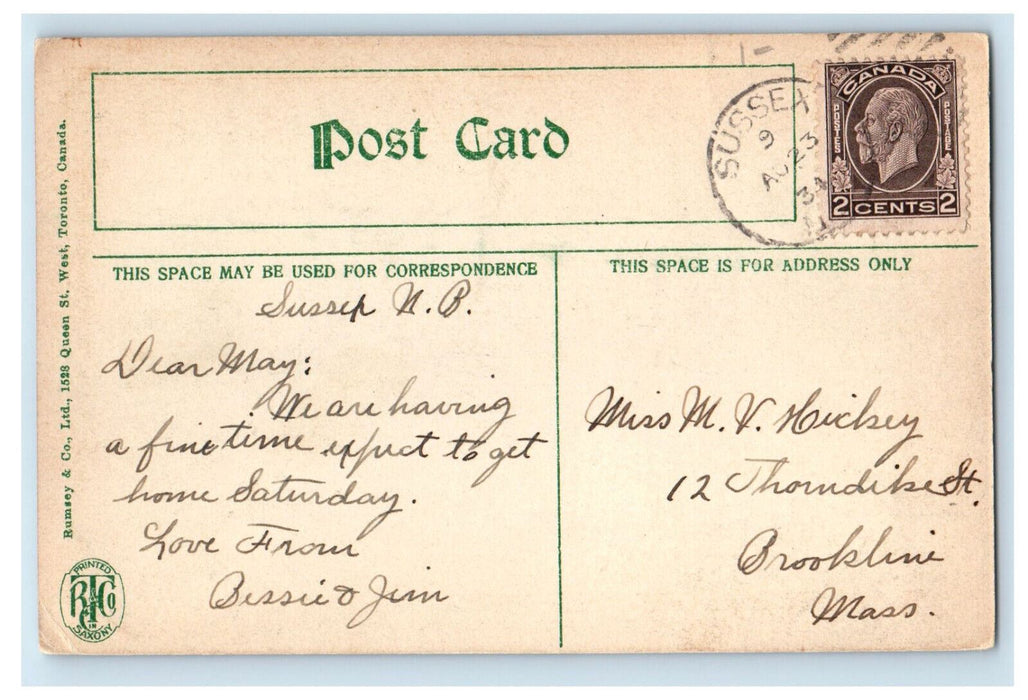 Post Card
SUSSEX
9
AU 23
34
CANADA
POSTES
POSTAGE
2 CENTS 2
THIS SPACE MAY BE USED FOR CORRESPONDENCE
THIS SPACE IS FOR ADDRESS ONLY
Sussex N.B.
Dear May:
We are having
a fine time expect to get
home Saturday.
Love From
Bessie & Jim
Miss M. V. Hickey
12 Thorndike St.
Brookline
Mass.
Rumsey & Co., Ltd., 1528 Queen St. West, Toronto, Canada.
PRINTED
R & Co
IN
SAXONY